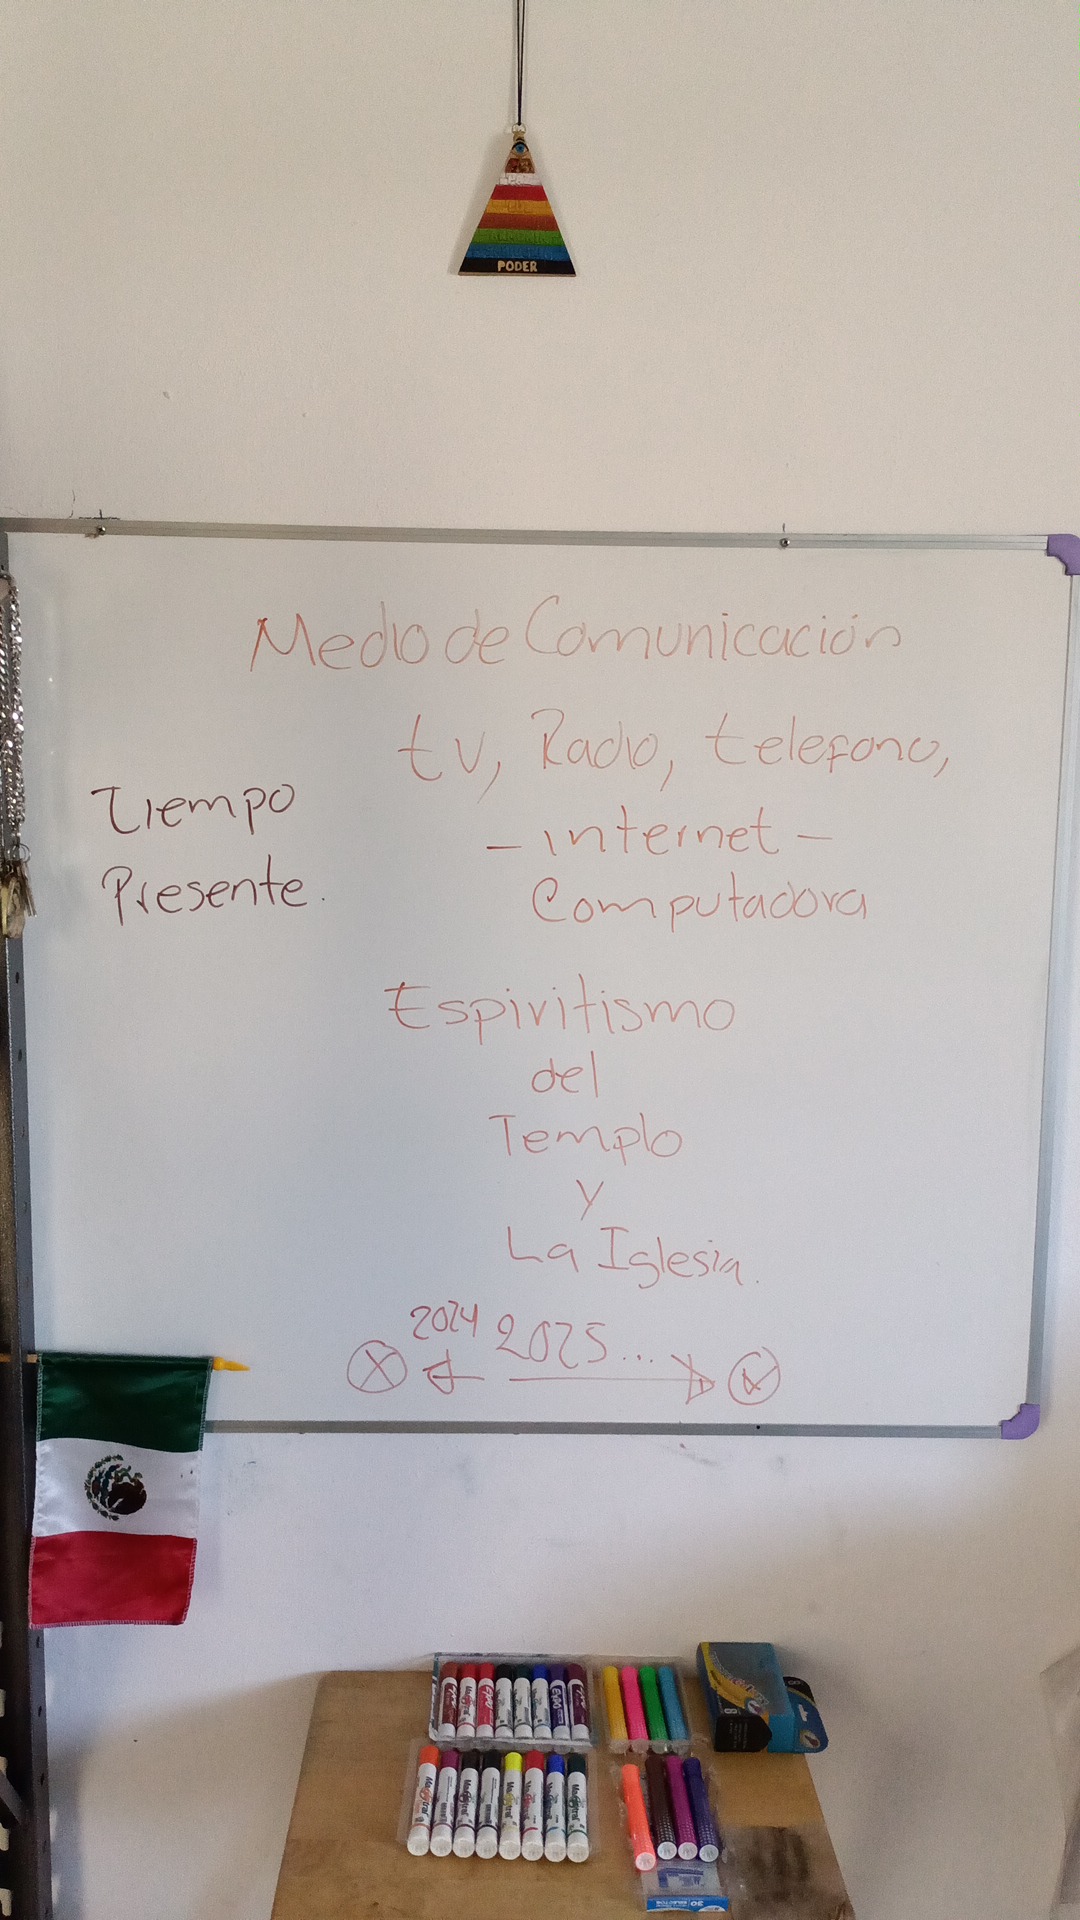 PODER
Medio de Comunicación
tv, Radio, telefono,
Tiempo
- internet -
Presente.
Computadora
Espiritismo
del
Templo
y
La Iglesia.
2024 2025...
EXPO
Magistral